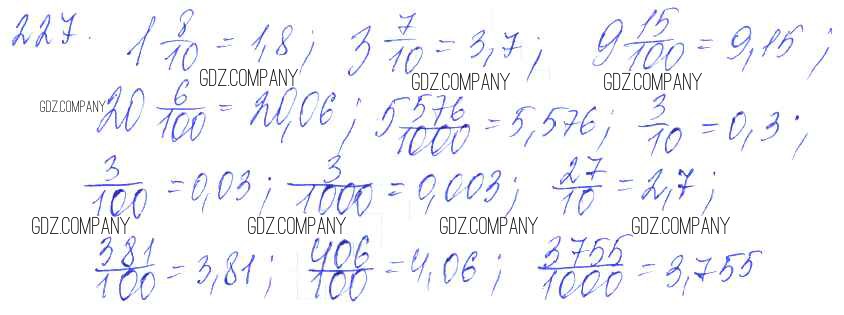 227. 1 8/10 = 1,8; 3 7/10 = 3,7; 9 15/100 = 9,15;
GDZ.COMPANY GDZ.COMPANY GDZ.COMPANY
GDZ.COMPANY 20 6/100 = 20,06; 5 576/1000 = 5,576; 3/10 = 0,3;
3/100 = 0,03; 3/1000 = 0,003; 27/10 = 2,7;
GDZ.COMPANY GDZ.COMPANY GDZ.COMPANY GDZ.COMPANY
381/100 = 3,81; 406/100 = 4,06; 3755/1000 = 3,755